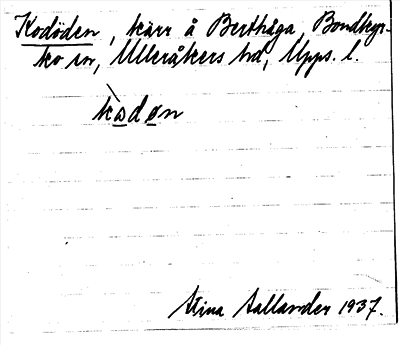 Kodöden, kärr å Berthåga, Bondkyr-
ko sn, Ulleråkers hd, Upps. l.
kòdøn
Stina Sallander 1937.